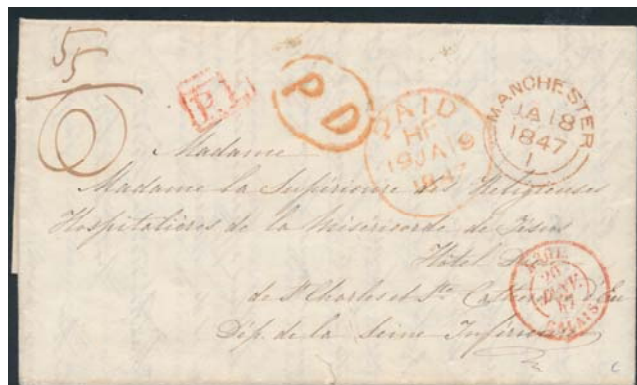 55
P.D
PD
PAID
HF
19JA19
1847
MANCHESTER
JA 18
1847
1
Madame
Madame la Supérieure des Religieuses
Hospitalières de la Miséricorde de Jésus
Hôtel Dieu
de St Charles et Ste Catherine d'Eu
Dép. de la Seine Inférieure
20
JANV
47
CALAIS
C